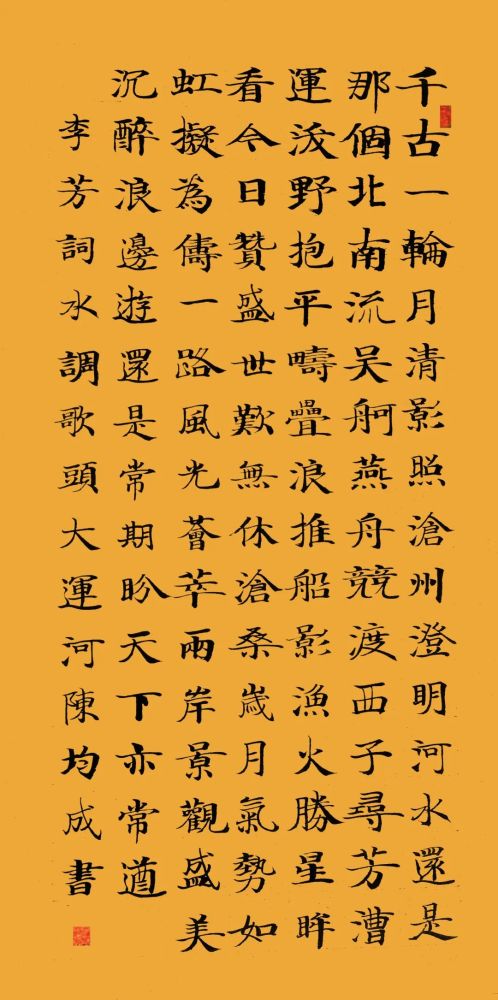 千古一輪月清影照滄州澄明河水還是
那個北南流吴舸燕舟競渡西子尋芳漕
運野抱平疇疊浪推船影漁火勝星眸
看今日贊盛世歎無休滄桑歲月氣勢如
虹擬為儔一路風光薈萃兩岸景觀盛美
沉醉浪邊遊還是常期盼天下亦常遒
李芳詞水調歌頭大運河陳均成書